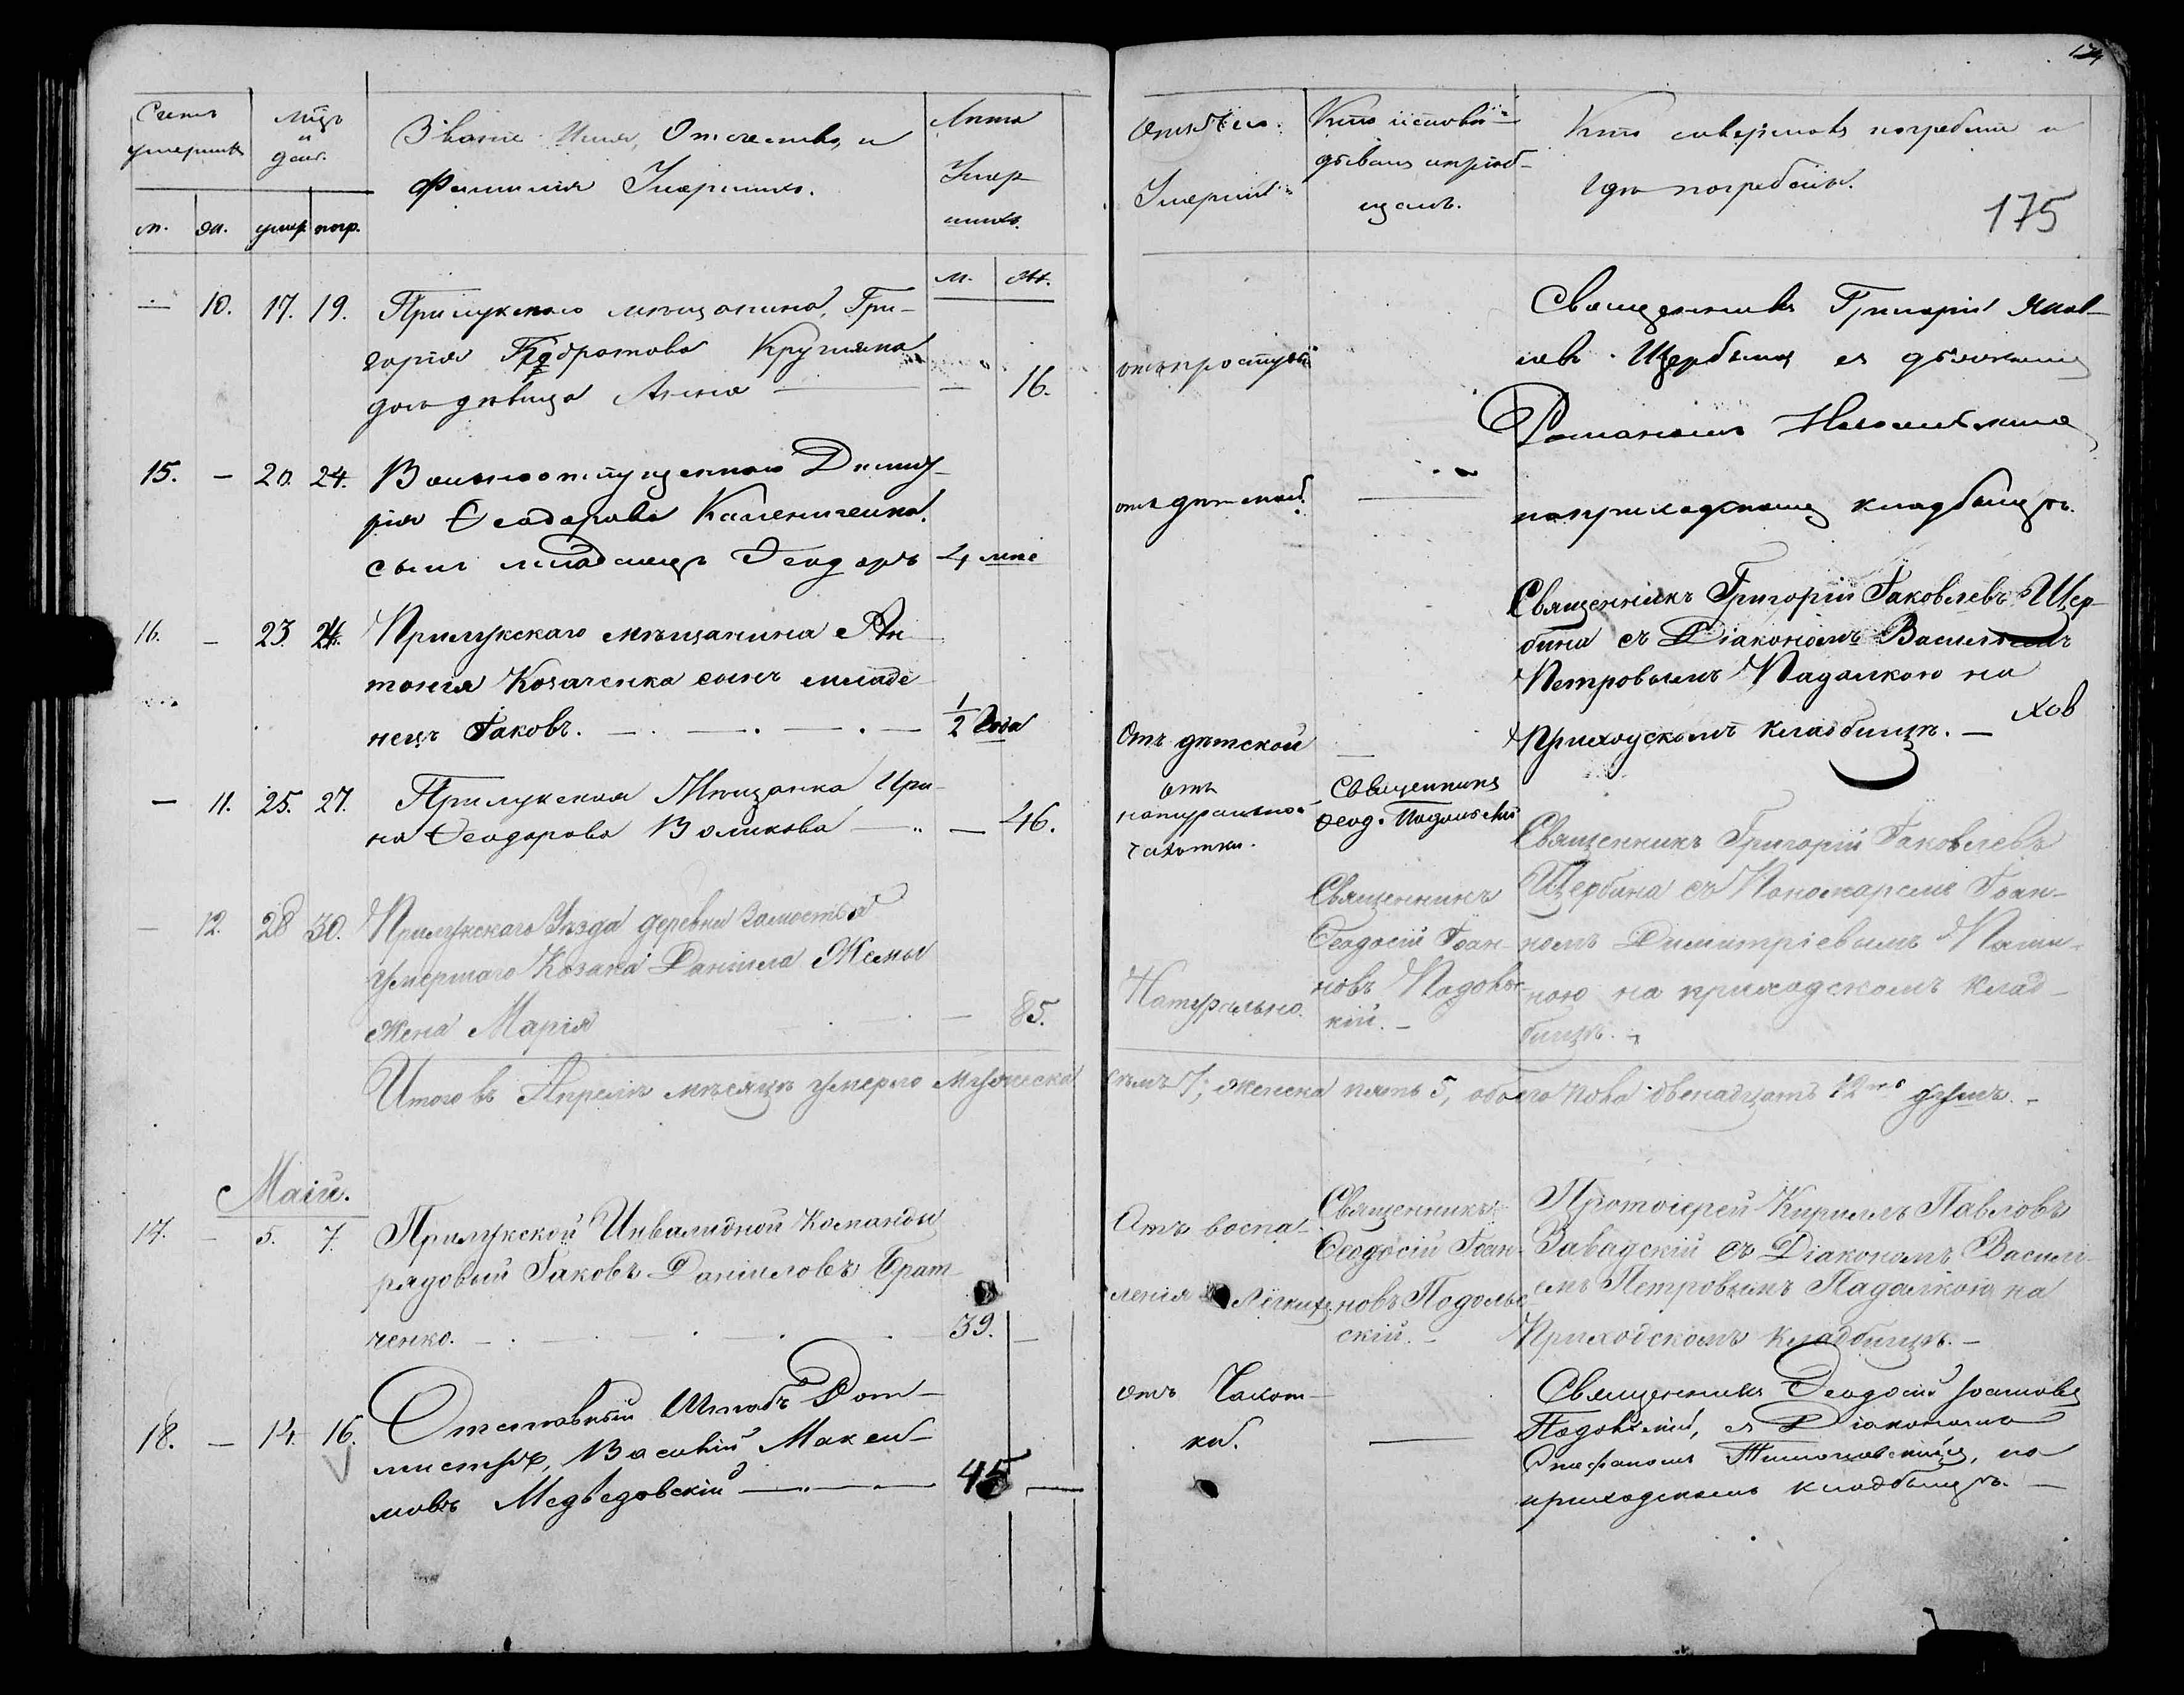 175
Счетъ умершихъ
Мѣсяцъ и день
Званіе Имя, Отчество, и
Фамилія Умершихъ.
Лѣта
Умер
шихъ.
м. ж. умер. погр.
м. ж.
Отъ чего
Умерли
Кто исповѣ-
дывалъ и пріоб-
щалъ.
Кто совершалъ погребеніе и
гдѣ погребены.
— 10. 17. 19. Прилукскаго мѣщанина, Гри-
горія Кругляка
дочь дѣвица Анна — — 16.
отъ простуды
Священникъ Григорій Яков-
левъ Щербина съ дьякономъ
Романомъ
на приходскомъ кладбищѣ.
15. — 20. 24. Вольноотпущеннаго Димит-
рія Ѳеодорова Калениченка
сынъ младенецъ Ѳеодоръ 4 лѣтъ
отъ дѣтской. —
16. — 23. 24. Прилукскаго мѣщанина Ан-
тонія Козаченка сынъ младе-
нецъ Іаковъ. — 1/2 Года
Отъ дѣтской —
Священникъ Григорій Іаковлевъ Щер-
бина съ Діакономъ Василіемъ
Петровымъ Падалкою на
Приходскомъ кладбищѣ. —
— 11. 25. 27. Прилукская Мѣщанка Ири-
на Ѳеодорова Воликова — — 46.
отъ
натуральной
чахотки.
Священникъ
Ѳеод. Подольскій
Священникъ Григорій Іаковлевъ
Щербина съ Пономаремъ Іоан-
номъ Димитріевымъ
на приходскомъ клад-
бищѣ. —
— 12. 28 30. Прилукскаго Уѣзда деревни Замостья
умершаго Козака Даніила Жемы
жена Марія — 85.
Натурально.
Священникъ
Ѳеодосій Іоан-
новъ Подольс-
кій. —
Итого въ Апрелѣ мѣсяцѣ умерло мужеска
семь 7, женска пять 5, обоего пола двенадцать 12ть душъ. —
Маій.
17. — 5. 7. Прилукской Инвалидной Команды
рядовый Іаковъ Даніиловъ Брат-
ченко. — 39. —
Отъ воспа-
ленія Легкихъ
Священникъ
Ѳеодосій Іоан-
новъ Подоль-
скій. —
Протоіерей Кириллъ Павловъ
Завадскій съ Діакономъ Василі-
емъ Петровымъ Падалкою на
Приходскомъ кладбищѣ. —
18. — 14. 16. Отставный Штабъ Рот-
мистръ, Василій Макси-
мовъ Медведовскій — 45 —
отъ Чахот-
ки. —
Священникъ Ѳеодосій Іоанновъ
Подольскій, съ Діакономъ
Стефаномъ, на
приходскомъ кладбищѣ. —